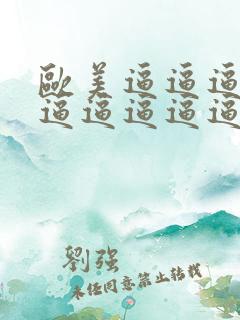 歐美逼逼逼
逼逼逼逼逼
劉强
未经同意禁止转载